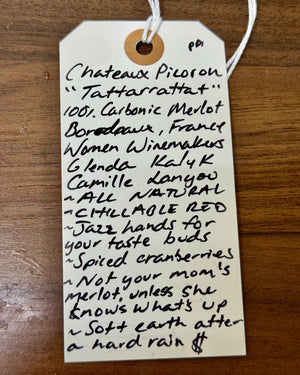 Chateaux Picoron
"Tattarrattat"
100%. Carbonic Merlot
Bordeaux, France
Women Winemakers
Glenda Kalyk
Camille
~ALL NATURAL
~CHILLABLE RED
~Jazz hands for
your taste buds
~Spiced cranberries
~Not your mom's
merlot, unless she
knows what's up
~Soft earth after
a hard rain